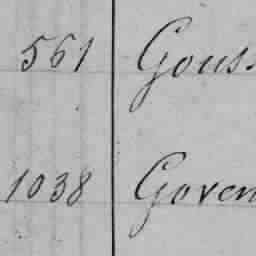 561 Gous
1038 Goven